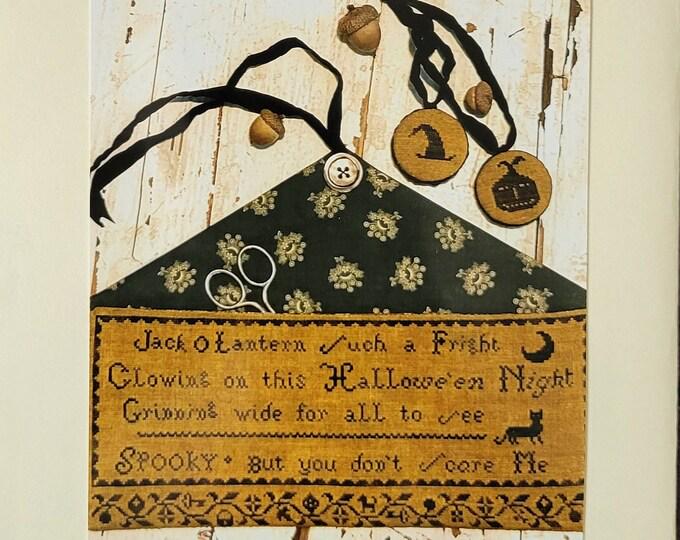 Jack O Lantern Such a Fright
Glowing on this Hallowe'en Night
Grinning wide for all to see
SPOOKY • But you don't scare Me